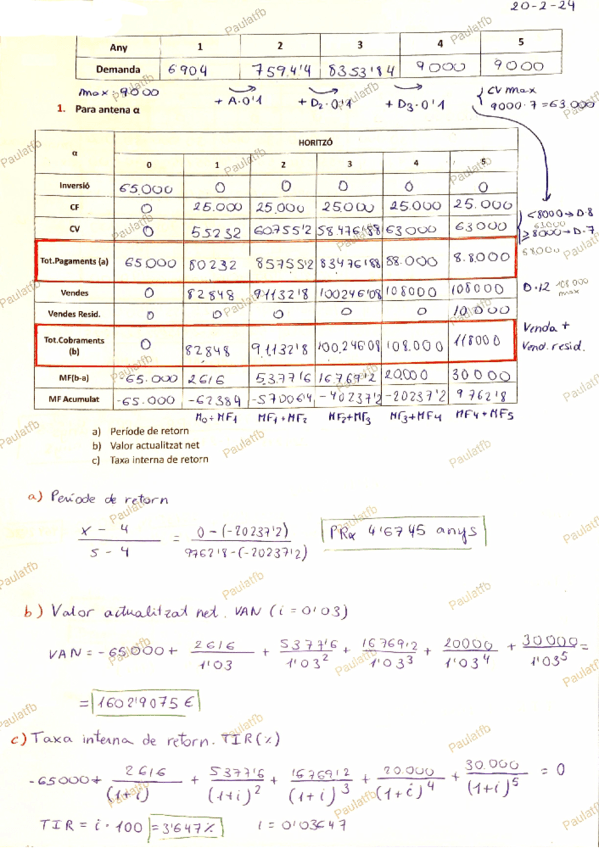 20-2-24
Any 1 2 3 4 5
Demanda 6904 7594'4 8353'84 9000 9000
max=9000 + Δ·0'1 + D₂·0'1 + D₃·0'1 CV max
9000·7=63000
1. Para antena α
α HORITZÓ
0 1 2 3 4 5
Inversió 65.000 0 0 0 0 0
CF 0 25.000 25.000 25.000 25.000 25.000
CV 0 55232 60755'2 58476'88 63000 63000
<8000→D·8
63000
≥8000→D·7
Tot.Pagaments (a) 65000 80232 85755'2 83476'88 88.000 88.000
Vendes 0 82848 91132'8 100246'08 108000 108000 D·12 108000
max
Vendes Resid. 0 0 0 0 0 10.000
Tot.Cobraments (b) 0 82848 91132'8 100.246'08 108.000 118000
Venda +
Vend. resid.
MF(b-a) -65.000 2616 5377'6 16769'2 20000 30000
MF Acumulat -65.000 -62384 -57006'4 -40237'2 -20237'2 9762'8
M₀+MF₁ MF₁+MF₂ MF₂+MF₃ MF₃+MF4 MF4+MF5
a) Període de retorn
b) Valor actualitzat net
c) Taxa interna de retorn
a) Període de retorn
x - 4 / 5 - 4 = 0-(-20237'2) / 9762'8-(-20237'2) PRα 4'6745 anys
b) Valor actualitzat net. VAN (i=0'03)
VAN = -65.000 + 2616/1'03 + 5377'6/1'03² + 16769'2/1'03³ + 20000/1'03⁴ + 30.000/1'03⁵ =
= 1602'9075 €
c) Taxa interna de retorn. TIR(%)
-65000 + 2616/(1+i) + 5377'6/(1+i)² + 16769'2/(1+i)³ + 20.000/(1+i)⁴ + 30.000/(1+i)⁵ = 0
TIR = i·100 = 3'647% i = 0'03647
Paulatfb